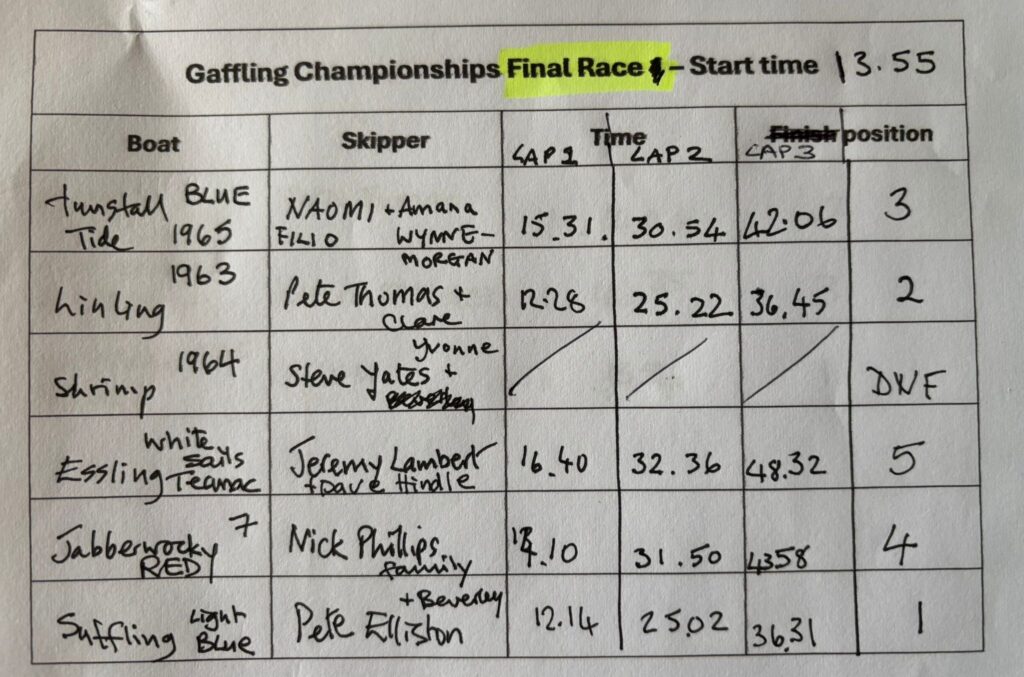 Gaffling Championships Final Race – Start time 13.55
Boat Skipper Time Finish position
LAP 1 LAP 2 LAP 3
Tunstall BLUE NAOMI + Amana 15.31. 30.54 42.06 3
Tide 1965 FILIO WYNNE-
MORGAN
1963
Linling Pete Thomas + 12.28 25.22 36.45 2
Clare
1964 Yvonne
Shrimp Steve Yates + DNF
White
Essling Sails Jeremy Lambert 16.40 32.36 48.32 5
Teamac + Dave Hindle
7
Jabberwocky Nick Phillips .10 31.50 4358 4
RED family
Light + Beverley
Suffling Blue Pete Elliston 12.14 25.02 36.31 1